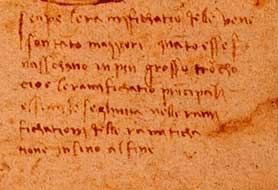 senpre le ramifichationi delle vene
sson tanto maggori quanto esse s
nasschano in più grosso tronchо
cioè le ramifichatio principali
essendo seghuita nelle rami
fichationi delle ramificha
tione insino al fine